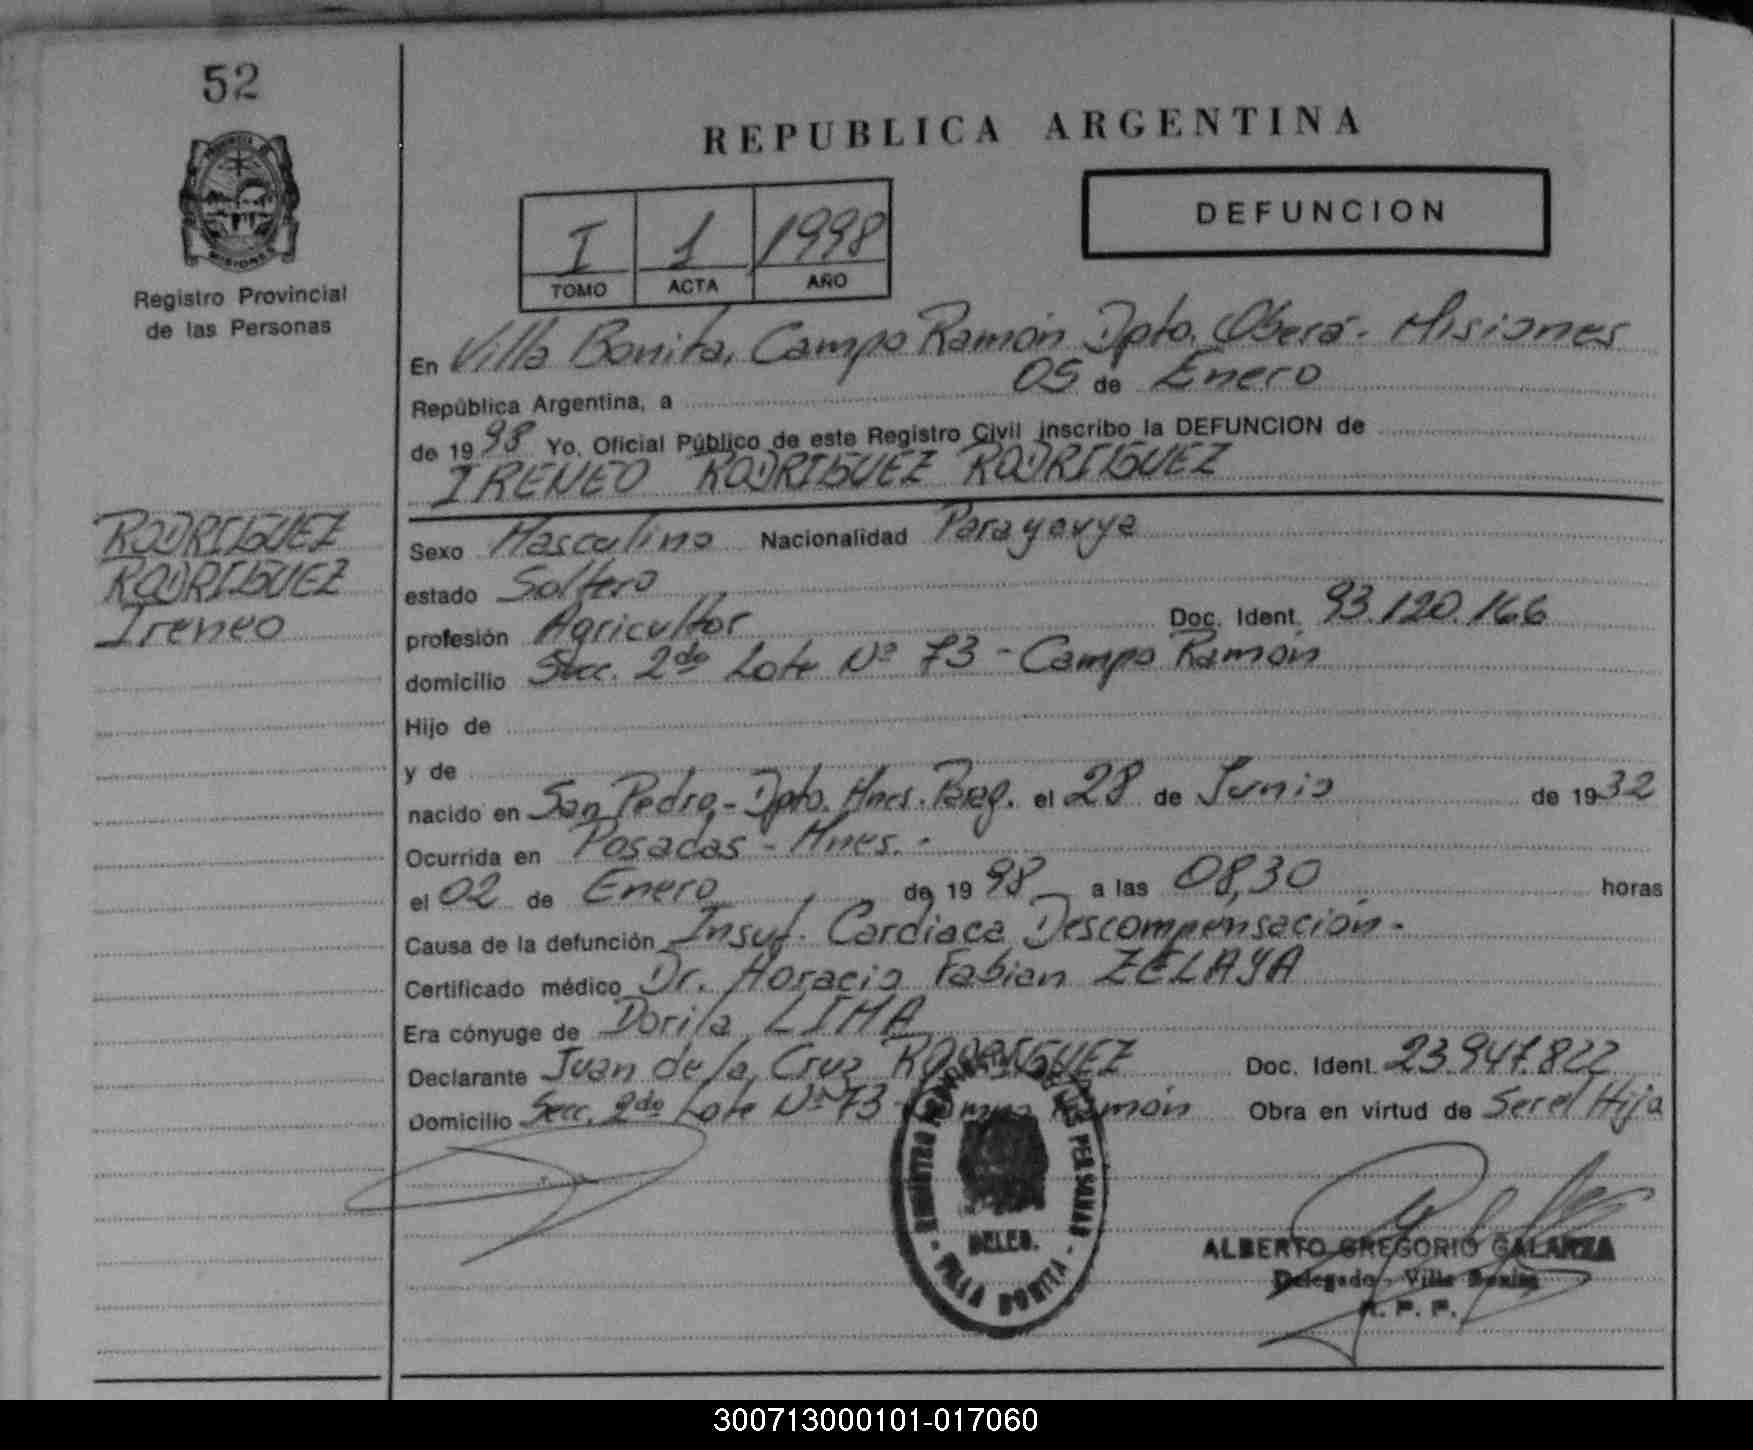 52
REPUBLICA ARGENTINA
MISIONES
Registro Provincial
de las Personas
I 1 1998
TOMO ACTA AÑO
DEFUNCION
En Villa Bonita, Campo Ramón Dpto. Oberá - Misiones
República Argentina, a 05 de Enero
de 1998 Yo, Oficial Público de este Registro Civil inscribo la DEFUNCION de
IRENEO RODRIGUEZ RODRIGUEZ
RODRIGUEZ
RODRIGUEZ
Ireneo
Sexo Masculino Nacionalidad Paraguaya
estado Soltero
profesión Agricultor Doc. Ident. 93.120.166
domicilio Secc. 2da Lote Nº 73 - Campo Ramón
Hijo de
y de
nacido en San Pedro - Dpto. Mnes. Parag. el 28 de Junio de 1932
Ocurrida en Posadas - Mnes. -
el 02 de Enero de 1998 a las 08,30 horas
Causa de la defunción Insuf. Cardiaca Descompensación -
Certificado médico Dr. Horacio Fabian ZELAYA
Era cónyuge de Dorila LIMA
Declarante Juan de la Cruz RODRIGUEZ Doc. Ident. 23.947.822
Domicilio Secc. 2da Lote Nº 73 - Campo Ramón Obra en virtud de Ser el Hijo
DE LAS PERSONAS
DELEG.
VILLA BONITA
ALBERTO GREGORIO GALARZA
Delegado - Villa Bonita
R. P. P.
300713000101-017060